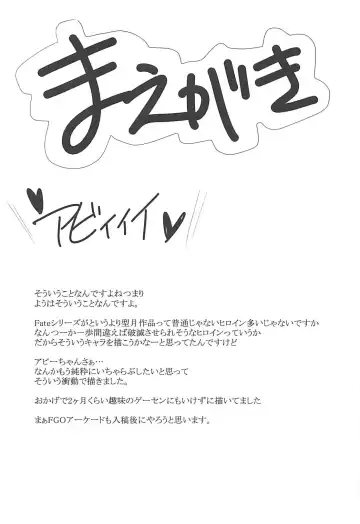 まえがき
アビィィイ
そういうことなんですよねつまり
ようはそういうことなんですよ。
Fateシリーズがというより型月作品って普通じゃないヒロイン多いじゃないですか
なんつーか一歩間違えば破滅させられそうなヒロインっていうか
だからそういうキャラを描こうかなーと思ってたんですけど
アビーちゃんさぁ…
なんかもう純粋にいちゃらぶしたいと思って
そういう衝動で描きました。
おかげで2ヶ月くらい趣味のゲーセンにもいけずに描いてました
まぁFGOアーケードも入稿後にやろうと思います。